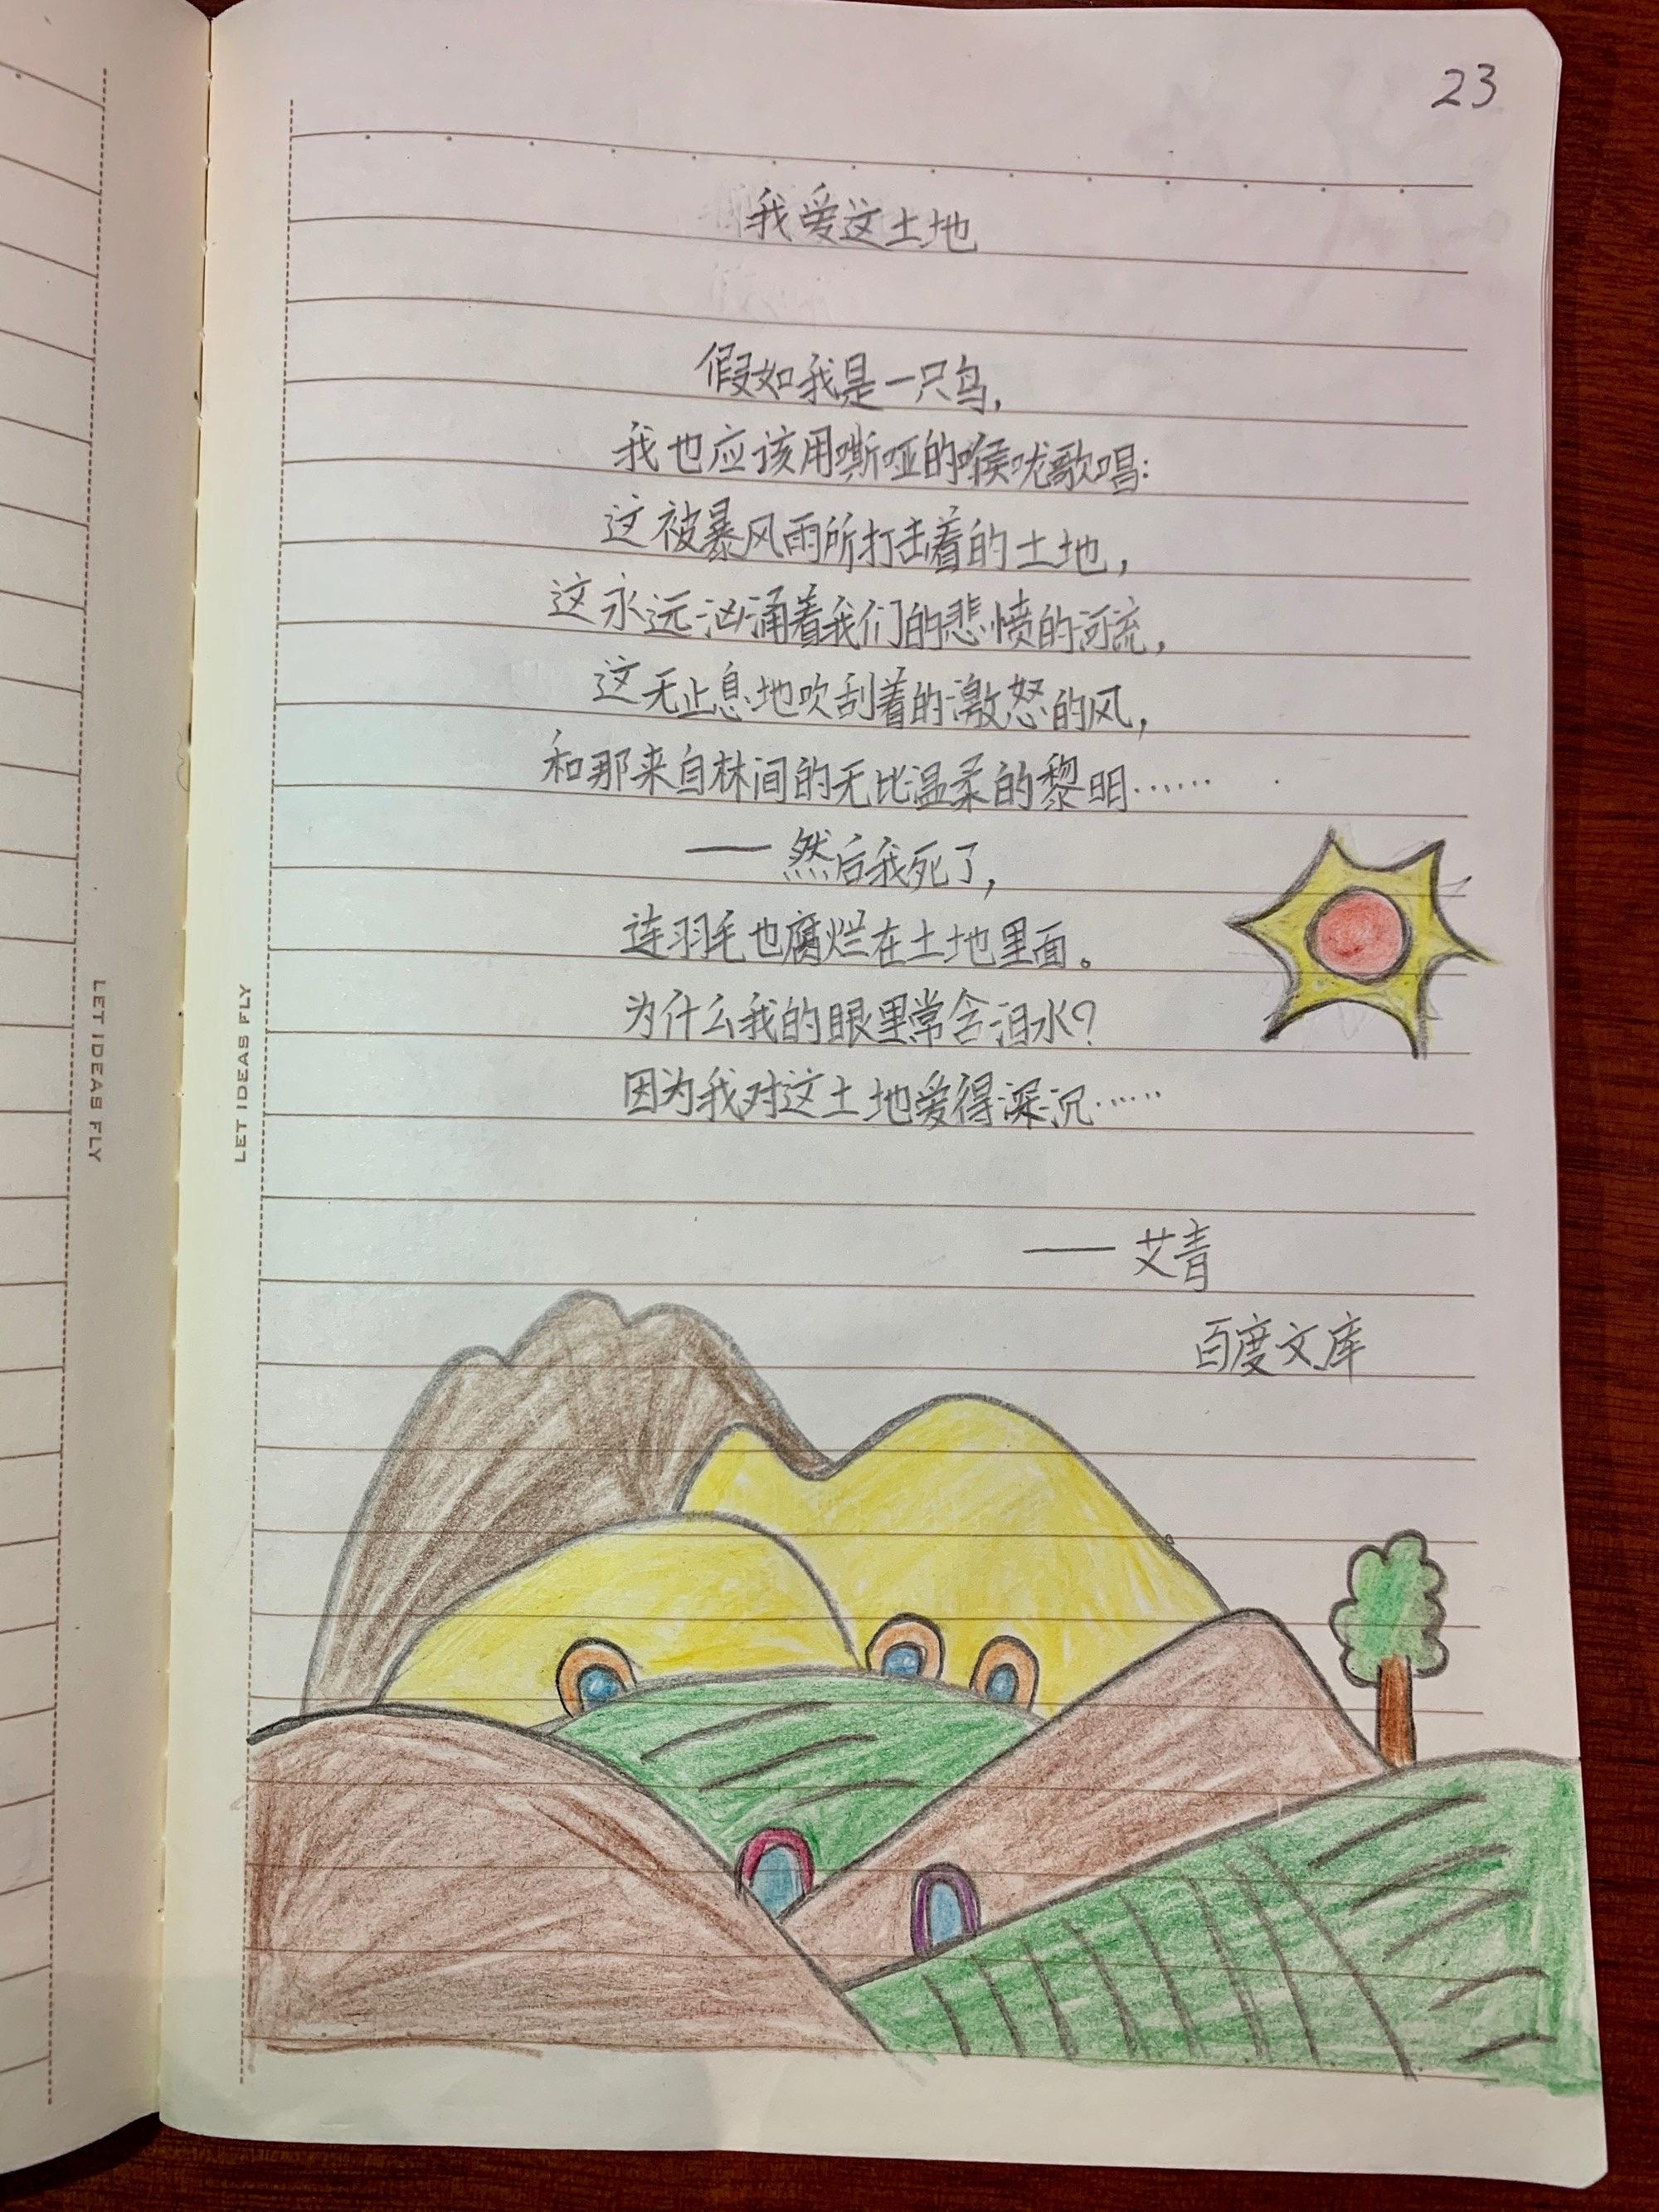 23
我爱这土地
假如我是一只鸟,
我也应该用嘶哑的喉咙歌唱:
这被暴风雨所打击着的土地,
这永远汹涌着我们的悲愤的河流,
这无止息地吹刮着的激怒的风,
和那来自林间的无比温柔的黎明……
——然后我死了,
连羽毛也腐烂在土地里面。
为什么我的眼里常含泪水?
因为我对这土地爱得深沉……
——艾青
百度文库
LET IDEAS FLY
LET IDEAS FLY